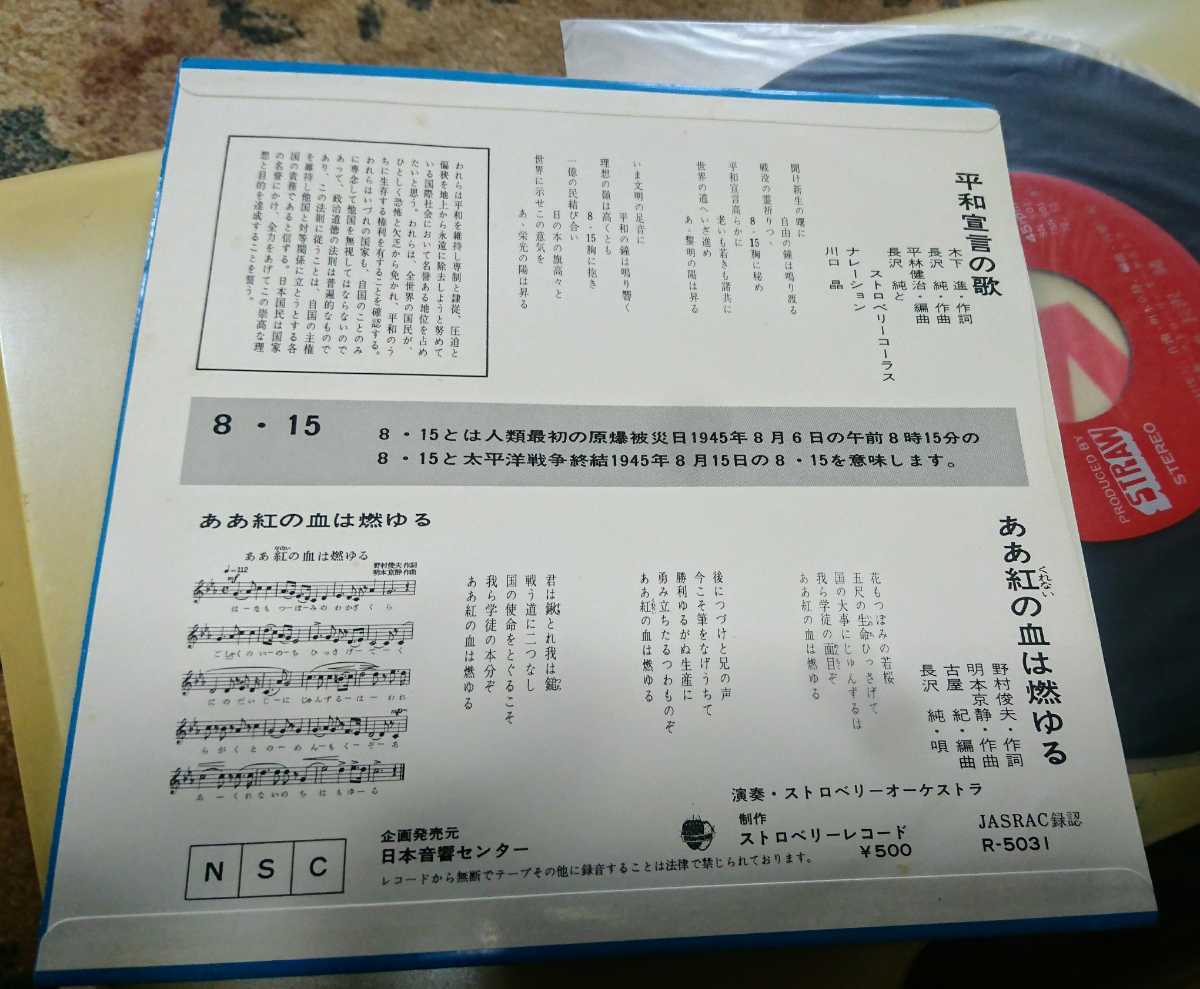 平和宣言の歌
木下 進・作詞
長沢 純・作曲
平林健治・編曲
長沢 純と
ストロベリーコーラス
ナレーション
川口 晶
聞け新生の曙に
自由の鐘は鳴り渡る
戦没の霊祈りつゝ
8・15胸に秘め
平和宣言高らかに
老いも若きも諸共に
世界の道へいざ進め
あゝ黎明の陽は昇る
いま文明の足音に
平和の鐘は鳴り響く
理想の嶺は高くとも
8・15胸に抱き
一億の民結び合い
日の本の旗高々と
世界に示せこの意気を
あゝ栄光の陽は昇る
われらは平和を維持し専制と隷従、圧迫と
偏狭を地上から永遠に除去しようと努めて
いる国際社会において名誉ある地位を占め
たいと思う。われらは、全世界の国民が、
ひとしく恐怖と欠乏から免かれ、平和のう
ちに生存する権利を有することを確認する。
われらはいづれの国家も、自国のことのみ
に専念して他国を無視してはならないので
あって、政治道徳の法則は普遍的なもので
あり、この法則に従うことは、自国の主権
を維持し他国と対等関係に立とうとする各
国の責務であると信ずる。日本国民は国家
の名誉にかけ、全力をあげてこの崇高な理
想と目的を達成することを誓う。
8・15
8・15とは人類最初の原爆被災日1945年8月6日の午前8時15分の
8・15と太平洋戦争終結1945年8月15日の8・15を意味します。
ああ紅の血は燃ゆる
くれない
野村俊夫・作詞
明本京静・作曲
古屋 紀・編曲
長沢 純・唄
花もつぼみの若桜
五尺の生命ひっさげて
国の大事にじゅんずるは
我ら学徒の面目ぞ
ああ紅の血は燃ゆる
後につづけと兄の声
今こそ筆をなげうちて
勝利ゆるがぬ生産に
勇み立ちたるつわものぞ
ああ紅の血は燃ゆる
君は鍬とれ我は鎚
戦う道に二つなし
国の使命をとぐるこそ
我ら学徒の本分ぞ
ああ紅の血は燃ゆる
ああ紅の血は燃ゆる
ああ紅の血は燃ゆる
野村俊夫 作詞
明本京静 作曲
♩=112
mf
はーなもつーぼみのわかざくら
ごしゃくのいーのち ひっさげーてーく
にのだいじーに じゅんずるーはーわれ
らがくとのーめんもくーぞーあ
あーくれないのち はもゆーる
演奏・ストロベリーオーケストラ
制作
ストロベリーレコード
¥500
JASRAC録認
R-5031
NSC
企画発売元
日本音響センター
レコードから無断でテープその他に録音することは法律で禁じられております。
PRODUCED BY
STRAW
STEREO